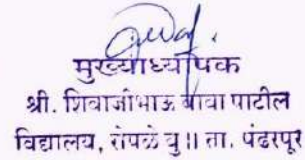 मुख्याध्यापक
श्री. शिवाजीभाऊ बाबा पाटील
विद्यालय, रोपळे बु॥ ता. पंढरपूर